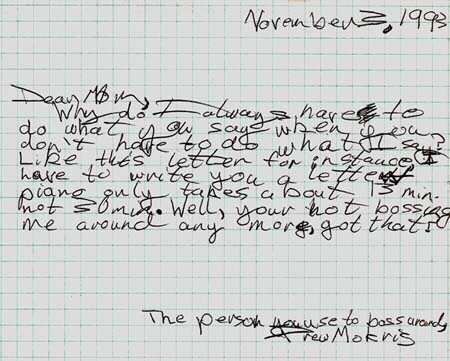 November 3, 1993
Dear Mom,
Why do I always have to
do what you say when you
don't have to do what I say?
Like this letter for instance I
have to write you a letter
piano only takes about 15 min.
not 30 min. Well, your not bossing
me around any more, got that!
The person you use to boss around,
Drew Mokris